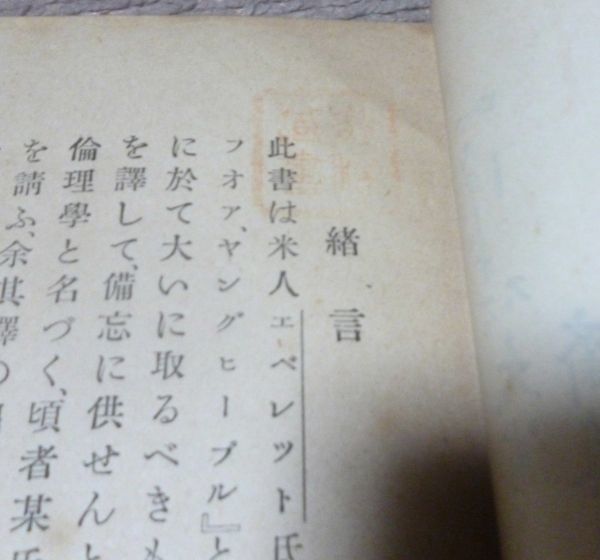 緒言
此書は米人エーベレット氏
フオア、ヤングピープル』と
に於て大いに取るべきも
を譯して、備忘に供せんと
倫理學と名づく、頃者某氏
を請ふ、余其譯の